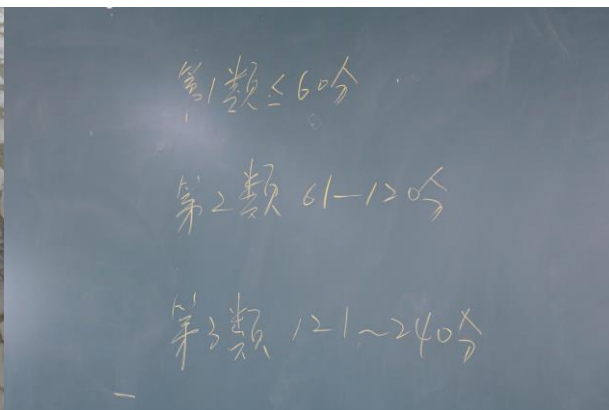 第1类≤60分
第2类 61-120分
第3类 121~240分